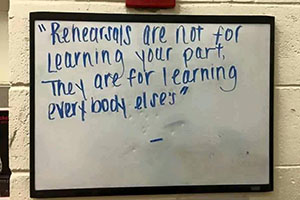 "Rehearsals are not for
learning your part,
They are for learning
everybody else's"